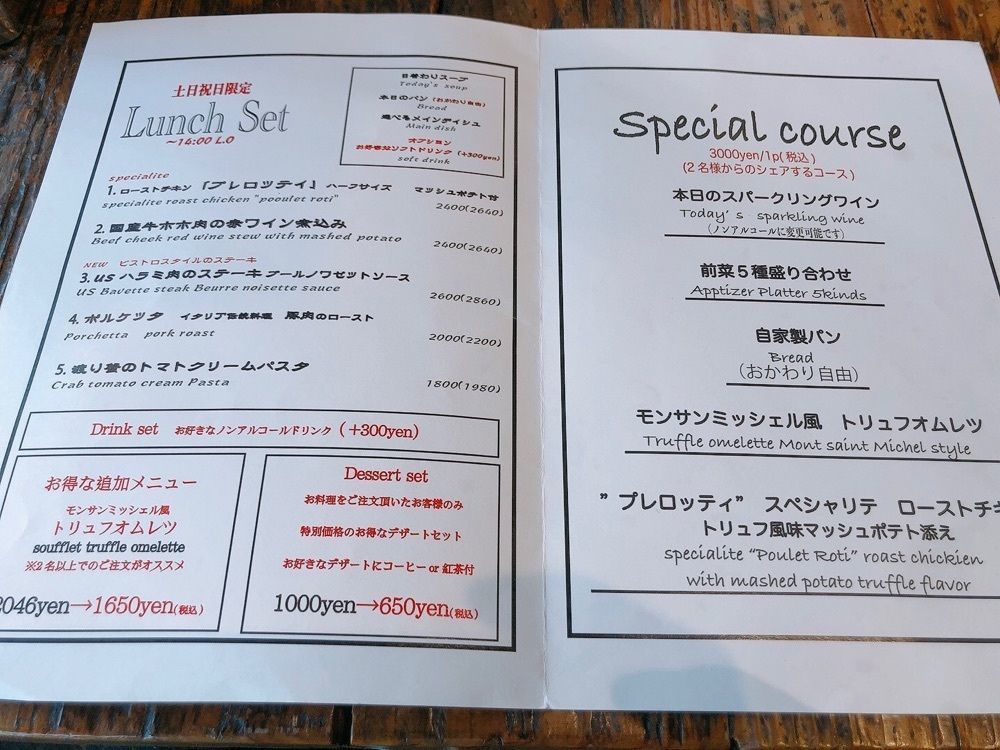 土日祝日限定
Lunch Set
～14:00 L.O
日替わりスープ
Today's soup
本日のパン(おかわり自由)
Bread
選べるメインディッシュ
Main dish
オプション
お好きなソフトドリンク(+300yen)
soft drink
specialite
1. ローストチキン 「プレロッティ」 ハーフサイズ マッシュポテト付
specialite roast chicken "pooulet roti" 2400(2640)
2. 国産牛ホホ肉の赤ワイン煮込み
Beef cheek red wine stew with mashed potato 2400(2640)
NEW ビストロスタイルのステーキ
3. us ハラミ肉のステーキ ブールノワゼットソース
US Bavette steak Beurre noisette sauce 2600(2860)
4. ポルケッタ イタリア伝統料理 豚肉のロースト
Porchetta pork roast 2000(2200)
5. 渡り蟹のトマトクリームパスタ
Crab tomato cream Pasta 1800(1980)
Drink set お好きなノンアルコールドリンク (+300yen)
お得な追加メニュー
モンサンミッシェル風
トリュフオムレツ
soufflet truffle omelette
※2名以上でのご注文がオススメ
2046yen→1650yen(税込)
Dessert set
お料理をご注文頂いたお客様のみ
特別価格のお得なデザートセット
お好きなデザートにコーヒー or 紅茶付
1000yen→650yen(税込)
Special course
3000yen/1p(税込)
(2名様からのシェアするコース)
本日のスパークリングワイン
Today's sparkling wine
(ノンアルコールに変更可能です)
前菜5種盛り合わせ
Apptizer Platter 5kinds
自家製パン
Bread
(おかわり自由)
モンサンミッシェル風 トリュフオムレツ
Truffle omelette Mont saint Michel style
"プレロッティ" スペシャリテ ローストチキ
トリュフ風味マッシュポテト添え
specialite "Poulet Roti" roast chickien
with mashed potato truffle flavor